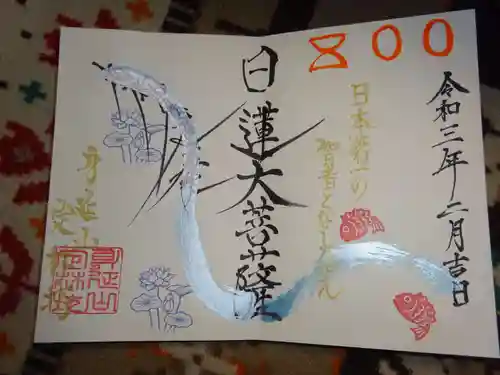 800
令和三年二月吉日
日本第一の
智者となし
日蓮大菩薩
身延山
覚林坊
身延山
覚林坊